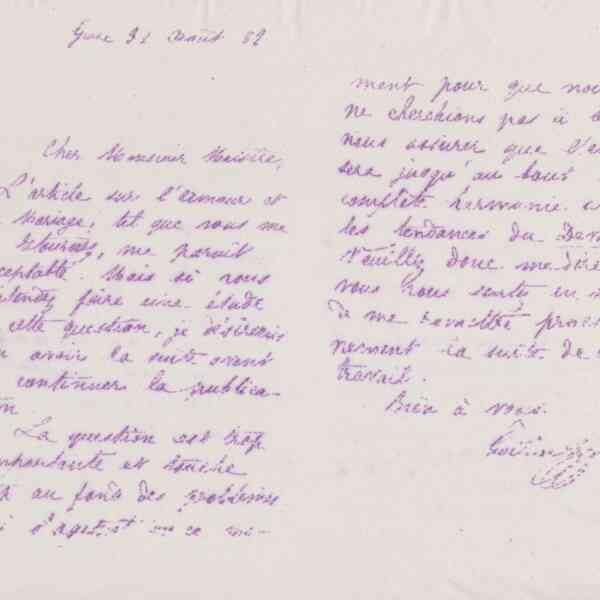 Guise 31 Août 82
Cher Monsieur Maistre,
L'article sur l'amour et
mariage, tel que vous me
retournez, me paraît
acceptable. Mais si vous
entendez faire une étude
cette question, je désirerais
avoir la suite avant
continuer la publica-
La question est trop
importante et touche
au fond des problèmes
s'agitent en ce mo-
ment pour que nou
ne cherchions pas à b
nous assurer que l'a
sera jusqu'au bout
complète harmonie
les tendances du Dev
Veuillez donc me dire
vous vous sentez en m
de me
la suite de
travail.
Bien à vous.
Godin